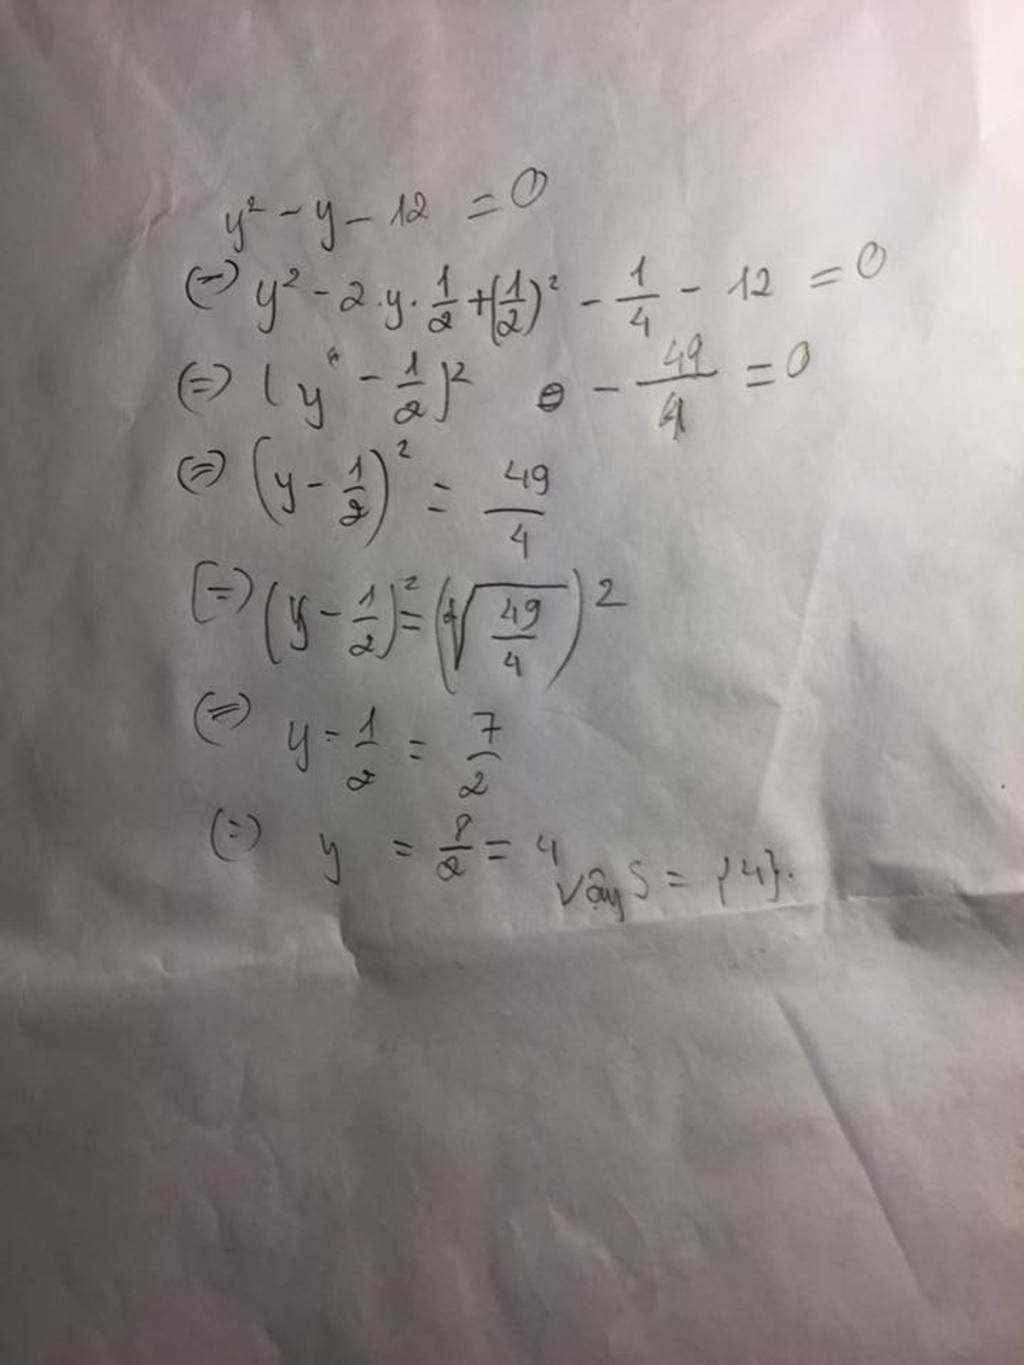 y² - y - 12 = 0
(=) y² - 2.y.1/2 + (1/2)² - 1/4 - 12 = 0
(=) (y - 1/2)² - 49/4 = 0
(=) (y - 1/2)² = 49/4
(=) (y - 1/2)² = (²√(49/4))²
(=) y - 1/2 = 7/2
(=) y = 8/2 = 4
Vậy S = {4}.